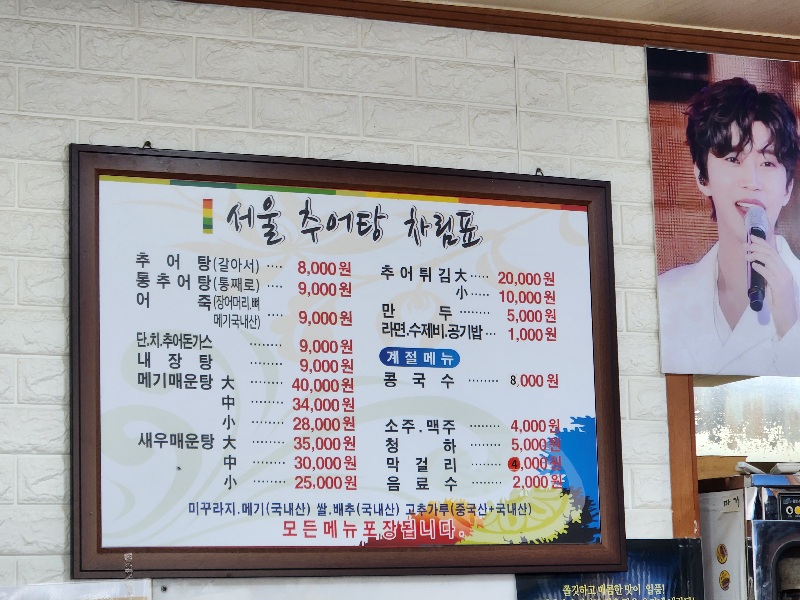 서울 추어탕 차림표
추 어 탕(갈아서) ···· 8,000원
통추어탕(통째로) ···· 9,000원
어 죽(장어머리,뼈
메기국내산) 9,000원
단.치.추어돈가스 ········ 9,000원
내 장 탕 ········ 9,000원
메기매운탕 大 ········ 40,000원
中 ········ 34,000원
小 ········ 28,000원
새우매운탕 大 ········ 35,000원
中 ········ 30,000원
小 ········ 25,000원
추어튀김大 ····· 20,000원
小 ····· 10,000원
만 두 ········ 5,000원
라면.수제비.공기밥 ··· 1,000원
계절메뉴
콩 국 수 ········ 8,000원
소주.맥주 ········ 4,000원
청 하 ········ 5,000원
막 걸 리 ········ 4,000원
음 료 수 ········ 2,000원
미꾸라지.메기(국내산) 쌀.배추(국내산) 고추가루(중국산+국내산)
모든메뉴포장됩니다.
쫄깃하고 매콤한 맛이 일품!